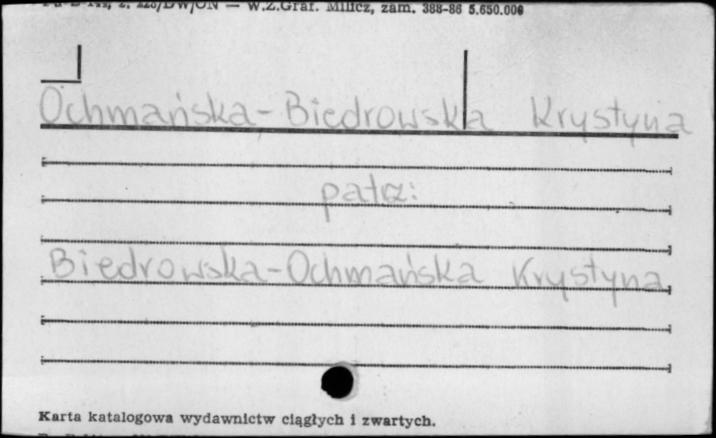 W.Z.Graf. Milicz, zam. 388-86 5.650.000
Ochmańska-Biedrowska Krystyna
patrz:
Biedrowska-Ochmańska Krystyna
Karta katalogowa wydawnictw ciągłych i zwartych.